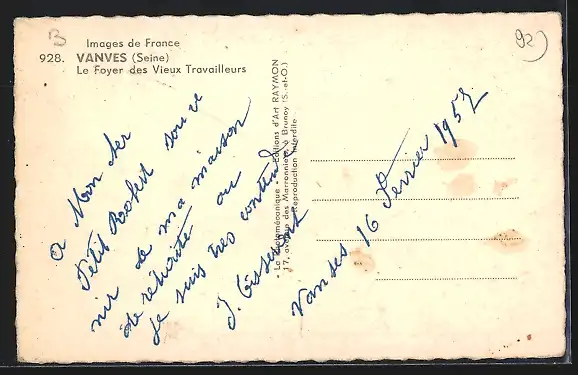 B
92)
Images de France
928. VANVES (Seine)
Le Foyer des Vieux Travailleurs
a Mon cher
Petit Robert souve
nir de ma maison
de retraite ou
je suis tres content
J.
Vanves 16 Fevrier 1957
• La Photomécanique • Editions d'Art RAYMON
17, avenue des Marronniers à Brunoy (S.-et-O.)
Reproduction interdite